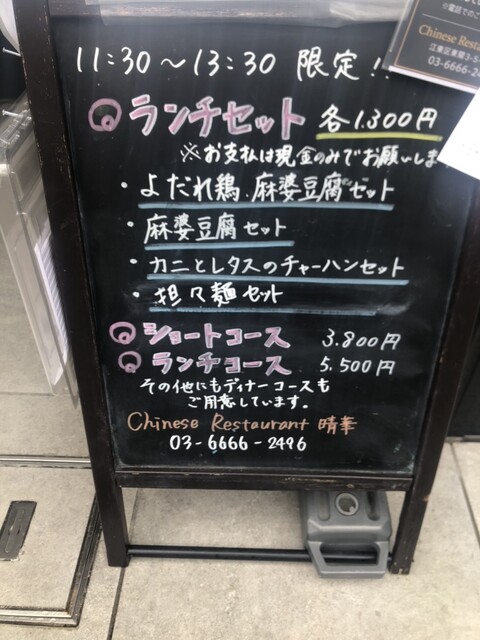 11:30～13:30 限定!!
ランチセット 各1.300円
※お支払は現金のみでお願いしま
・よだれ鶏.麻婆豆腐セット
・麻婆豆腐セット
・カニとレタスのチャーハンセット
・担々麺セット
ショートコース 3.800円
ランチコース 5.500円
その他にもディナーコースも
ご用意しています。
Chinese Restaurant 晴華
03-6666-2496
※電話でのご
Chinese Resta
江東区東陽3-5
03-6666-24